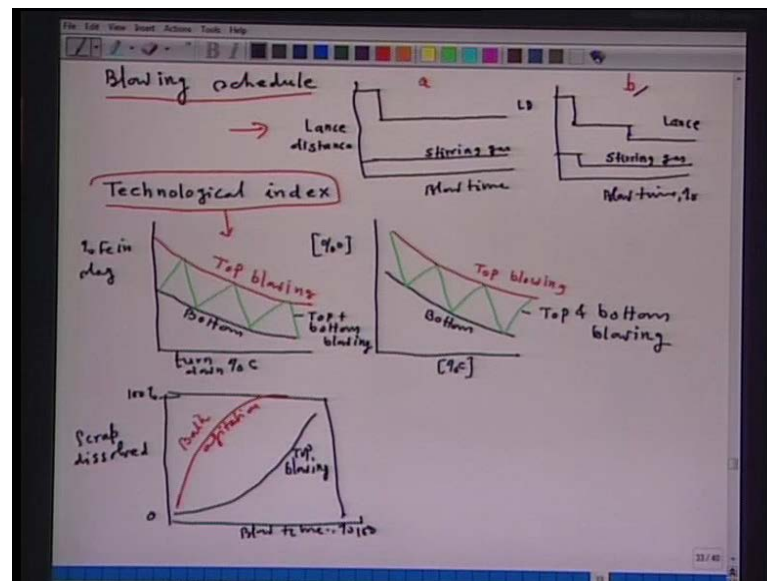 File Edit View Insert Actions Tools Help
Blowing schedule
a
b
Lance distance
LD
Stirring gas
Blow time
Lance
Stirring gas
Blow time, %
Technological index
% Fe in slag
Top blowing
Bottom
Top + bottom blowing
turn down % C
[% O]
Top blowing
Bottom
Top & bottom blowing
[% C]
100%
Scrap dissolved
Bath agitation
Top blowing
0
Blow time
100
33/40